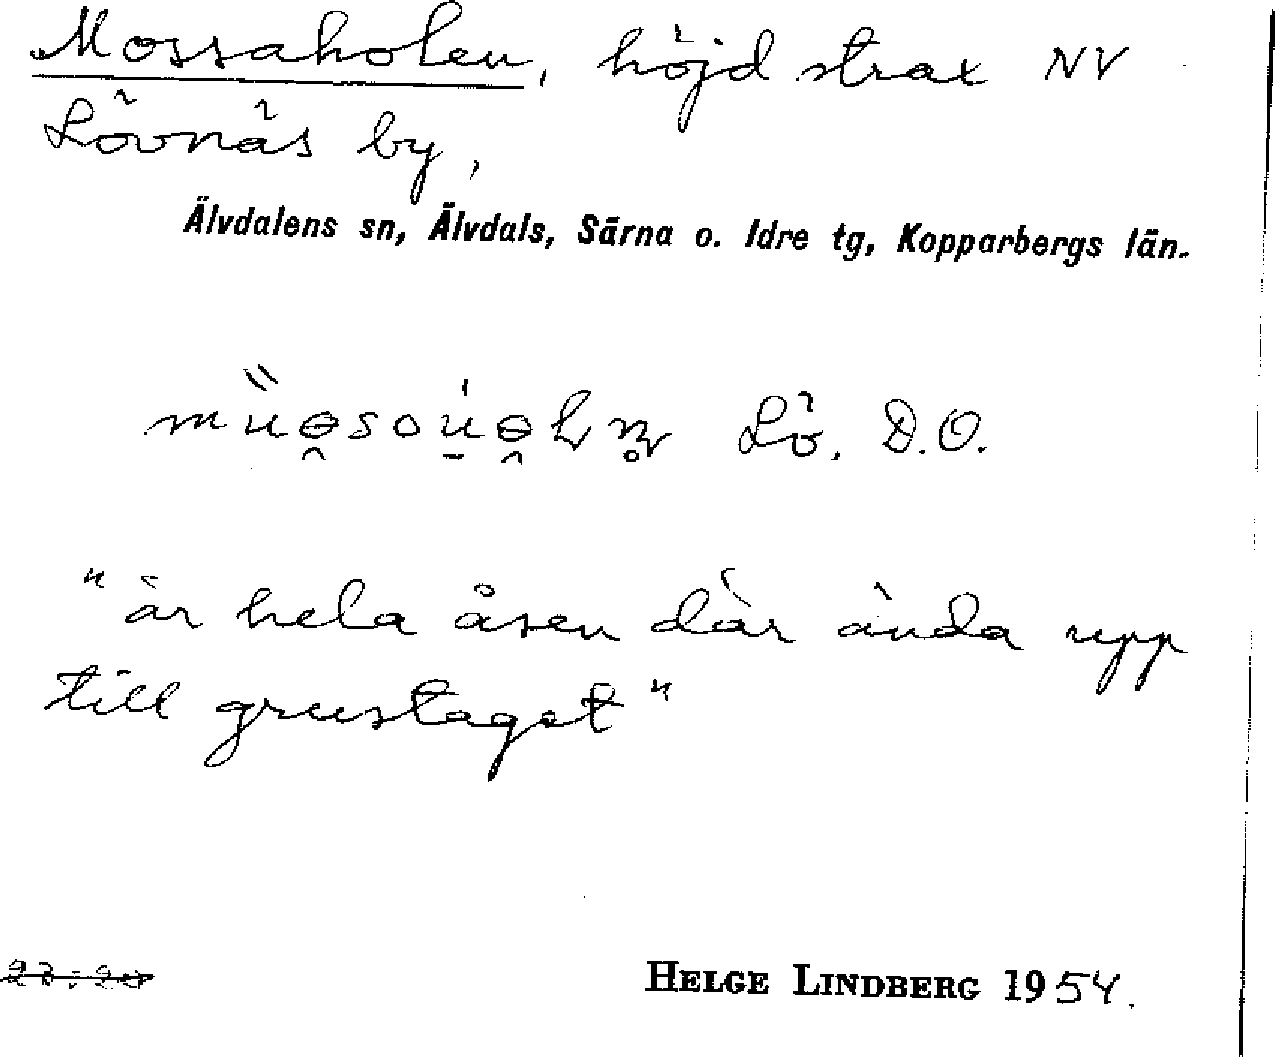 Mossaholen, höjd strax NV
Lövnäs by,
Älvdalens sn, Älvdals, Särna o. Idre tg, Kopparbergs län.
Lö. D.O.
"är hela åsen där ända upp
till grustaget"
23:20
HELGE LINDBERG 1954.